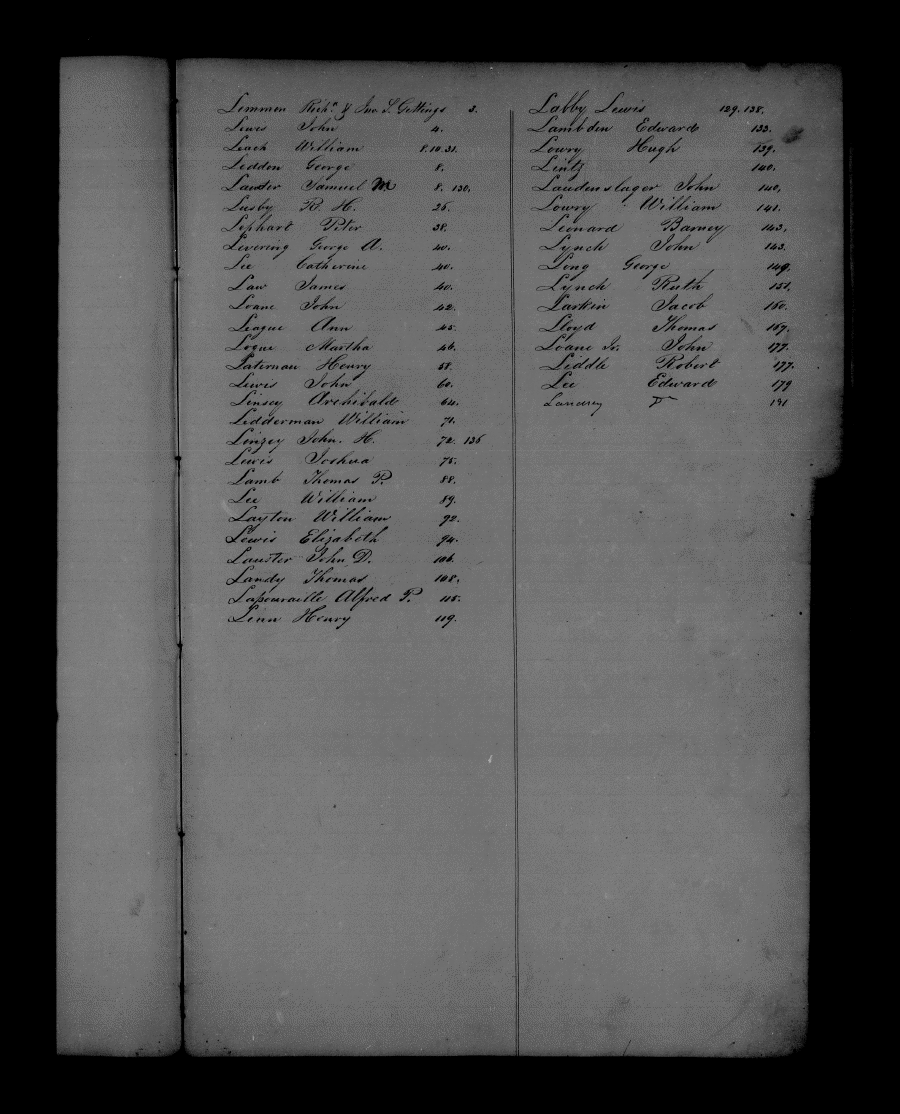 Lemmon Rich.d & Jno. S. Gettings 3.
Lewis John 4.
Leach William 8.10.31.
Leddon George 8.
Lauster Samuel M 8. 130.
Lusby R. H. 25.
Lephart Peter 38.
Levering George A. 40.
Lee Catherine 40.
Law James 40.
Loane John 42.
League Ann 45.
Logue Martha 46.
Laternau Henry 58.
Lewis John 60.
Linsey Archibald 64.
Lidderman William 71.
Linzey John. H. 72. 136
Lewis Joshua 75.
Lamb Thomas P. 88.
Lee William 89.
Layton William 92.
Lewis Elizabeth 94.
Lauster John D. 106.
Landy Thomas 108.
Lapouraille Alfred P. 115.
Linn Henry 119.
Labby Lewis 129.138.
Lambden Edward 133.
Lowry Hugh 139.
Lintz 140.
Laudenslager John 140.
Lowry William 141.
Leonard Barney 143.
Lynch John 143.
Long George 149.
Lynch Ruth 151.
Larkin Jacob 160.
Lloyd Thomas 167.
Loane Jr. John 177.
Liddle Robert 177.
Lee Edward 179
Landrey 191